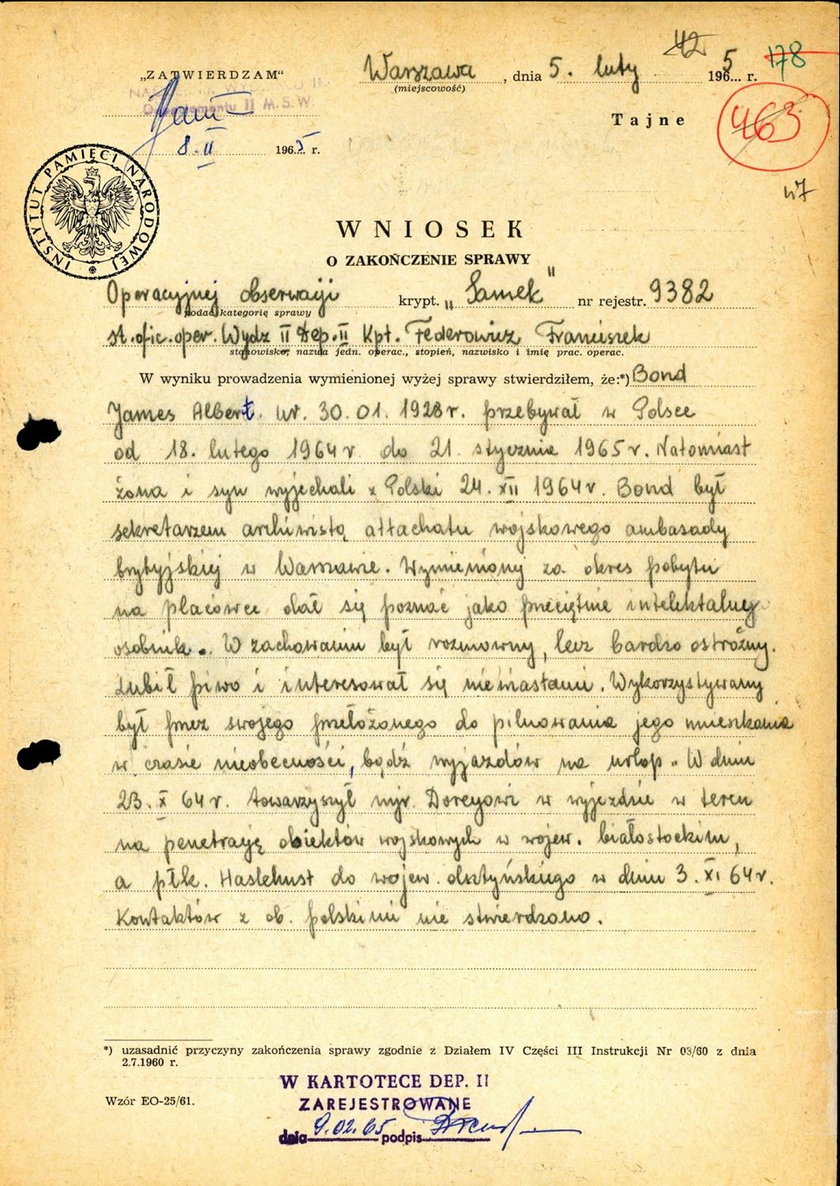 42 178
„ZATWIERDZAM" Warszawa, dnia 5. luty 1965 r.
(miejscowość)
Departamentu II M.S.W.
Tajne
463
8-II 1965 r.
47
INSTYTUT PAMIĘCI NARODOWEJ
WNIOSEK
O ZAKOŃCZENIE SPRAWY
Operacyjnej obserwacji krypt. „Samek" nr rejestr. 9382
podać kategorię sprawy
st.ofic.oper. Wydz II Dep. II Kpt. Federowicz Franciszek
stanowisko, nazwa jedn. operac., stopień, nazwisko i imię prac. operac.
W wyniku prowadzenia wymienionej wyżej sprawy stwierdziłem, że:*) Bond
James Albert. ur. 30.01.1928r. przebywał w Polsce
od 18. lutego 1964r do 21. stycznia 1965r. Natomiast
żona i syn wyjechali z Polski 24. XII 1964r. Bond był
sekretarzem archiwistą attachatu wojskowego ambasady
brytyjskiej w Warszawie. Wymieniony za okres pobytu
na placówce dał się poznać jako przeciętnie intelektalnej
osobnik. W zachowaniu był rozmowny, lecz bardzo ostrożny.
Lubił piwo i interesował się niewiastami. Wykorzystywany
był przez swojego przełożonego do pilnowania jego mieszkania
w czasie nieobecności, bądź wyjazdów na urlop. W dniu
23. X 64r. towarzyszył mjr. Doreyowi w wyjeździe w teren
na penetrację obiektów wojskowych w wojew. białostockim,
a płk. Haslehust do wojew. olsztyńskiego w dniu 3. XI 64r.
Kontaktów z ob. polskimi nie stwierdzono.
*) uzasadnić przyczyny zakończenia sprawy zgodnie z Działem IV Części III Instrukcji Nr 03/60 z dnia
2.7.1960 r.
W KARTOTECE DEP. II
Wzór EO-25/61. ZAREJESTROWANE
dnia 9.02.65 podpis